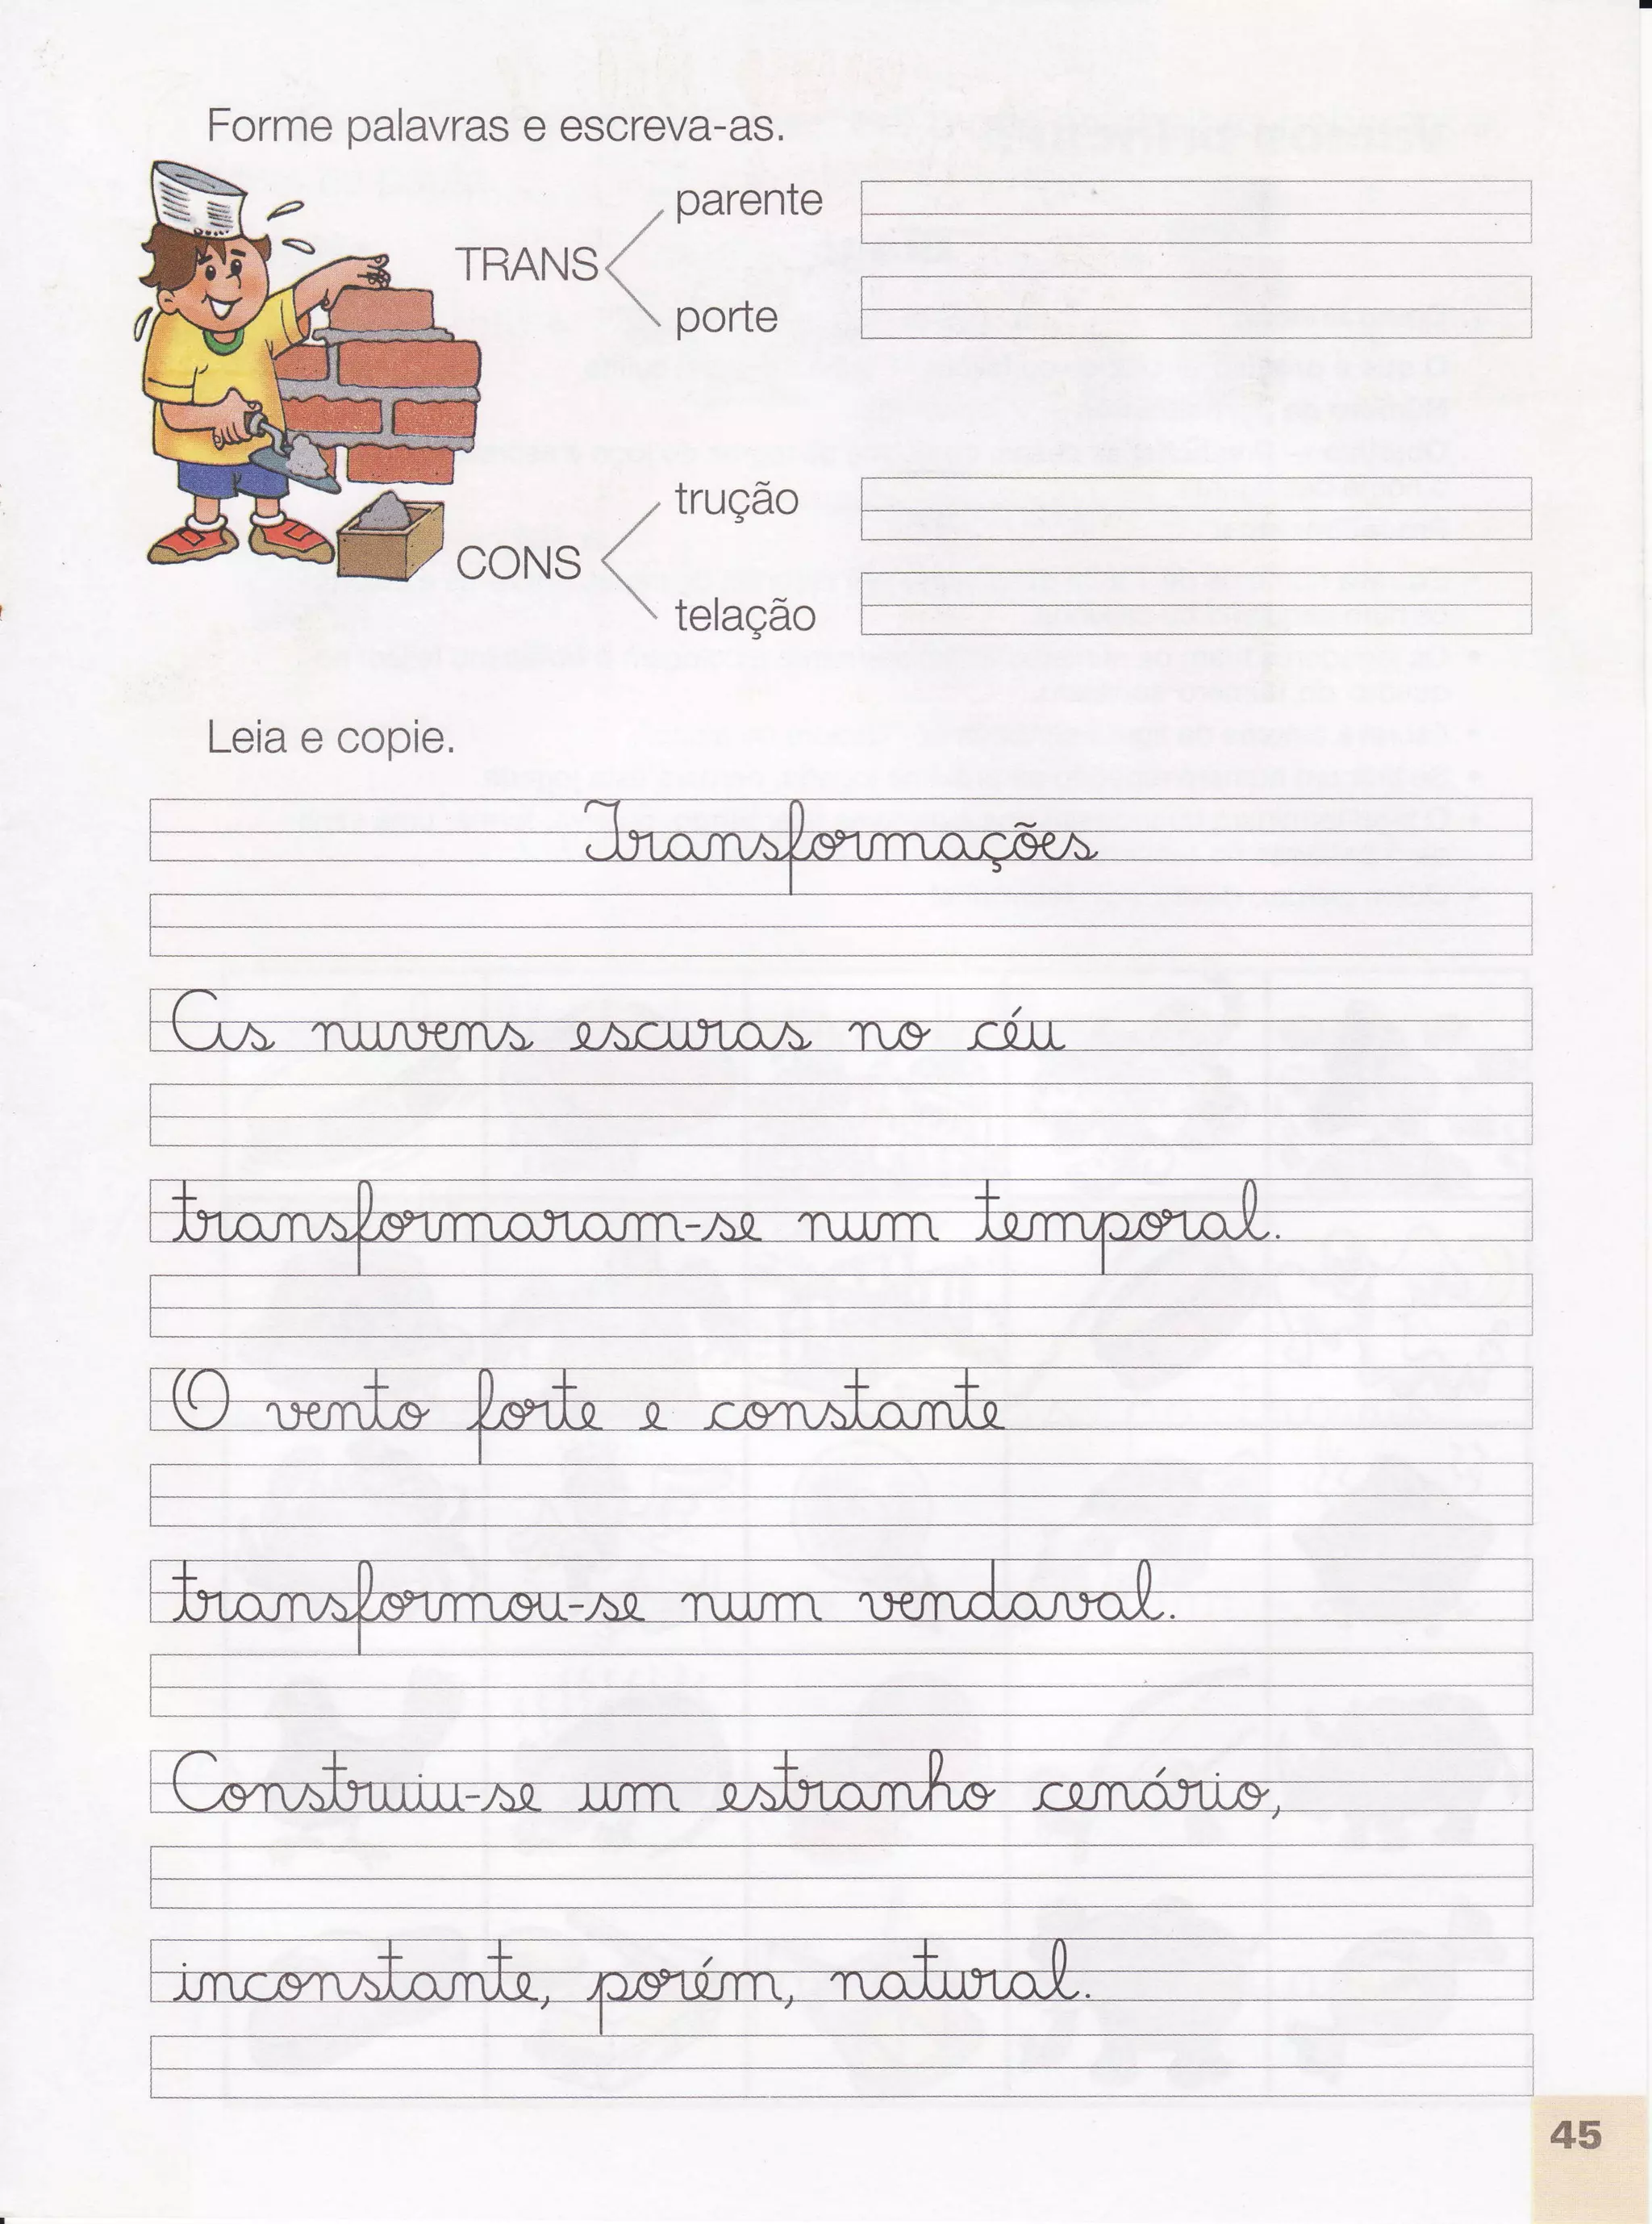 Forme palavras e escreva-as.
TRANS
parente
porte
CONS
trução
telação
Leia e copie.
Transformações
As nuvens escuras no céu
transformaram-se num temporal.
O vento forte e constante
transformou-se num vendaval.
Construiu-se um estranho cenário,
inconstante, porém, natural.
45